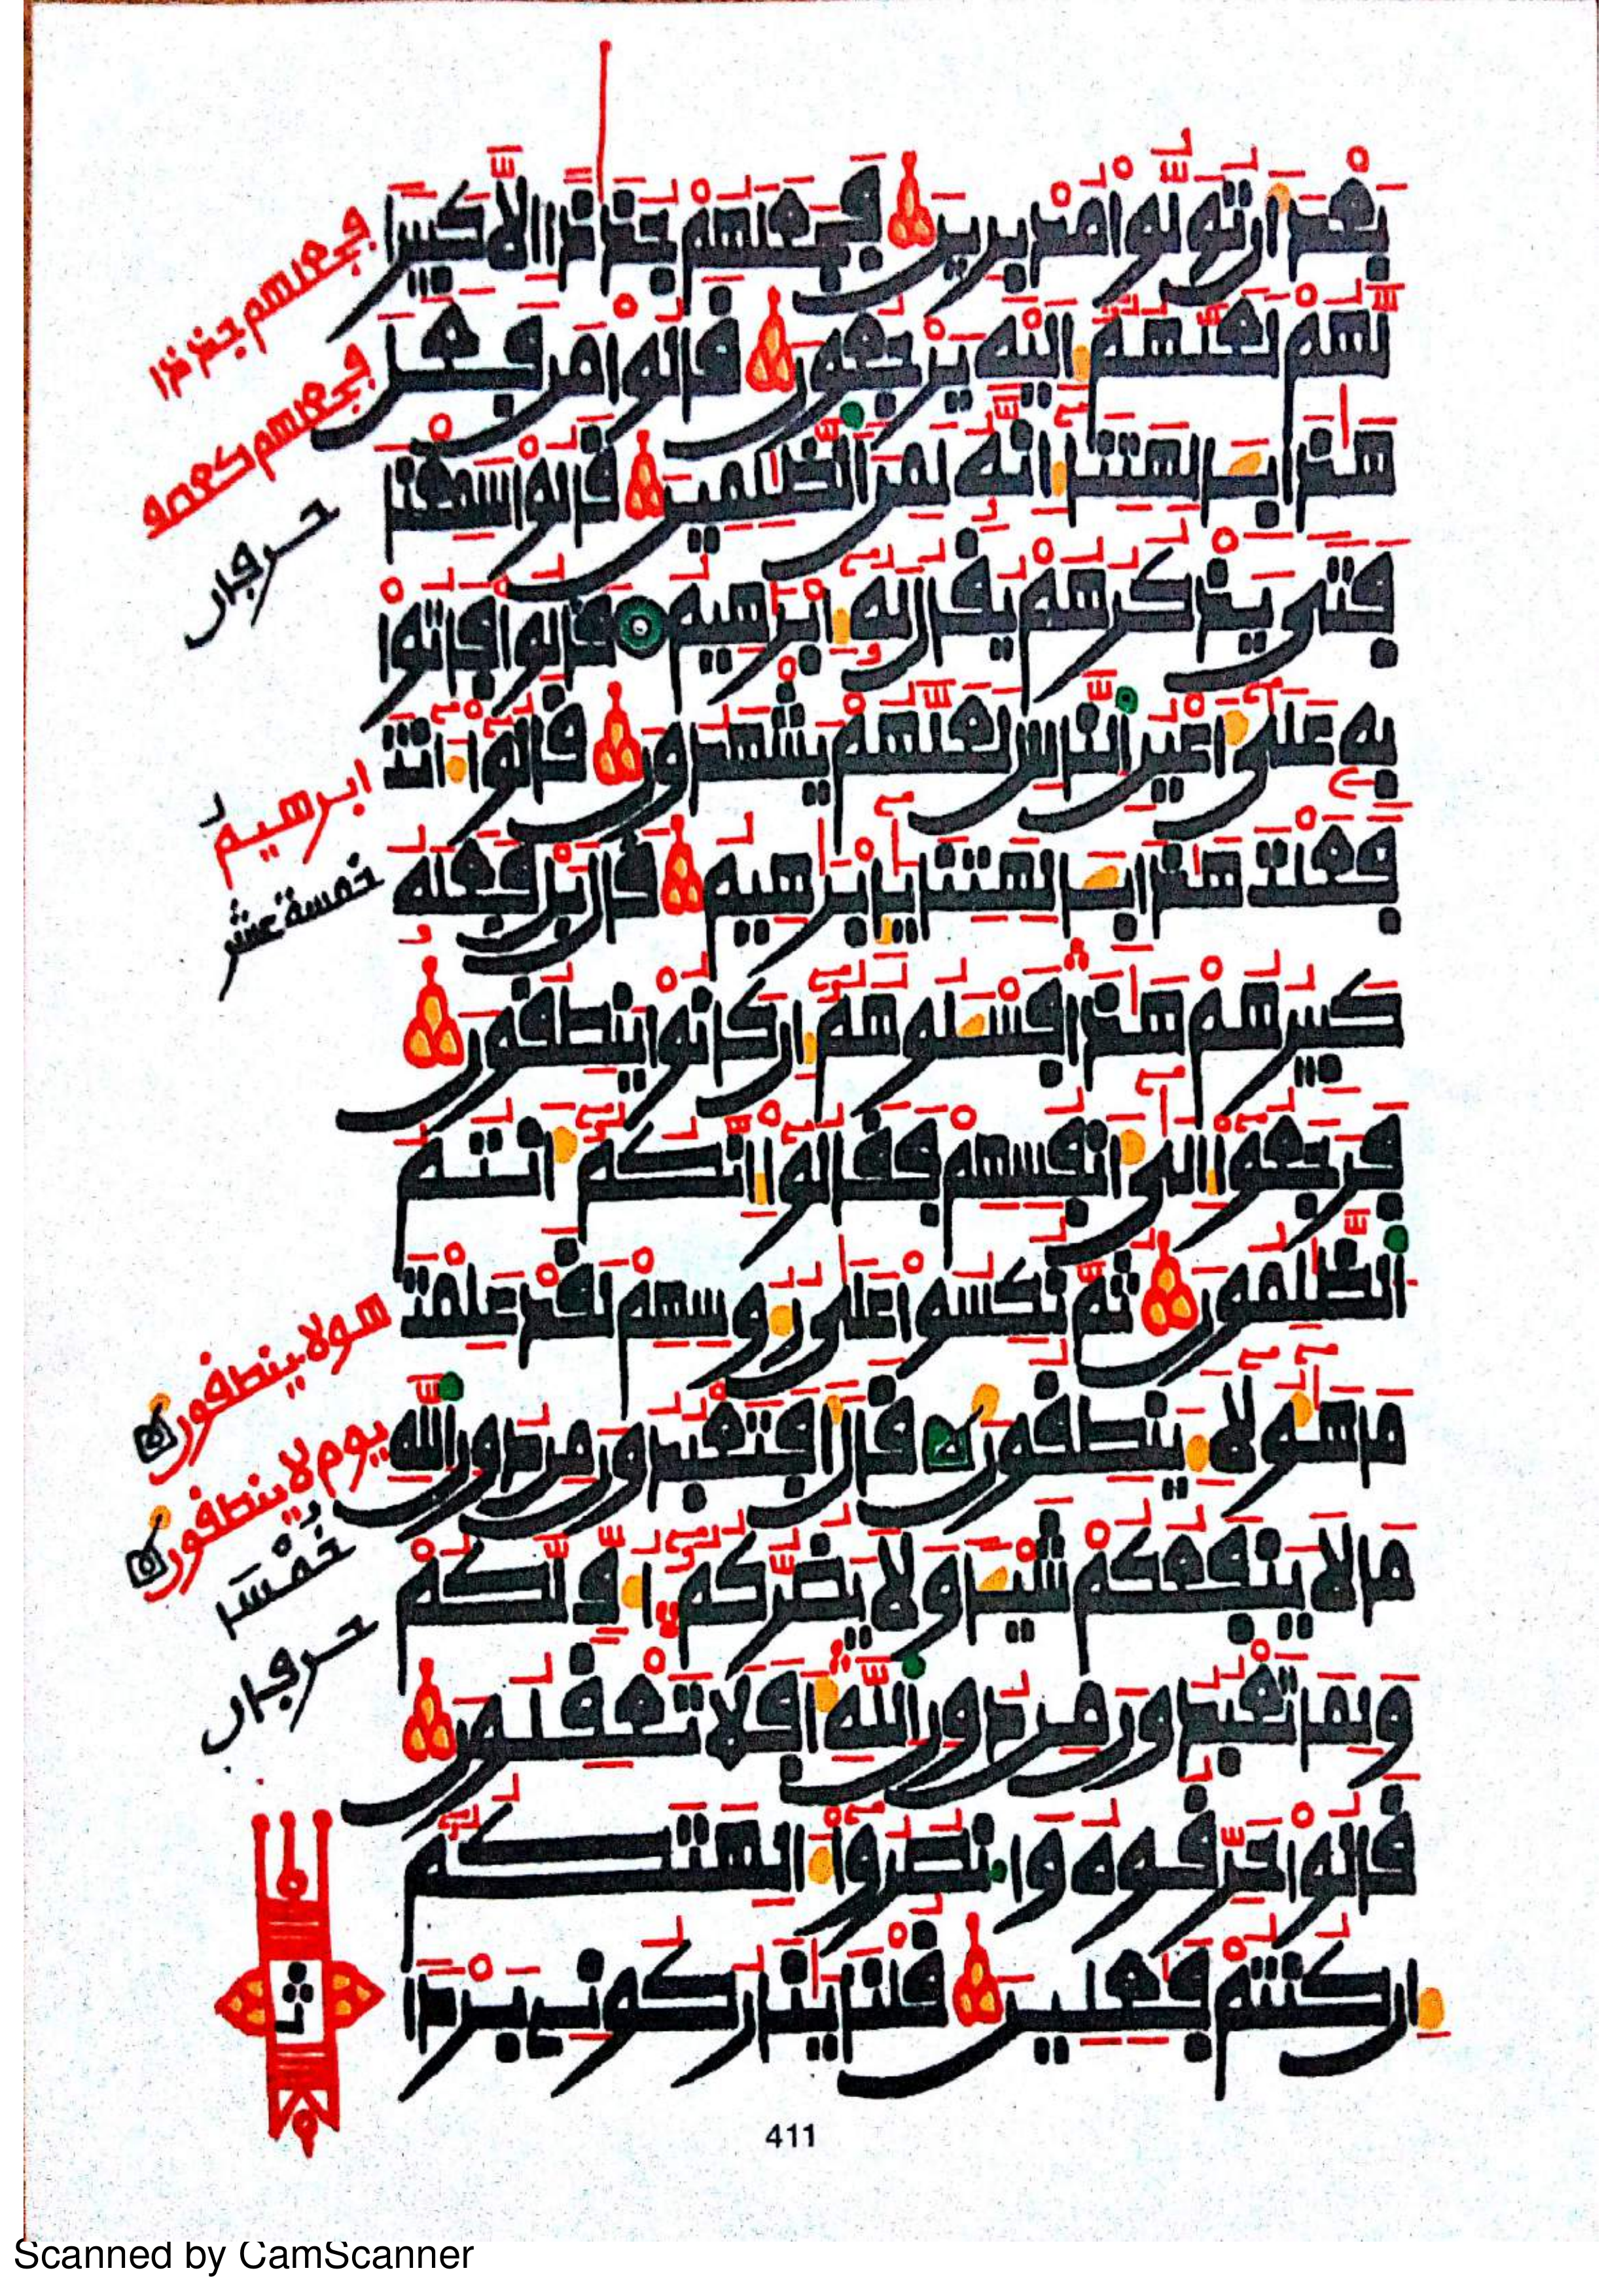 بعد ان تولوا مدبرين فجعلهم جذاذا الا كبيرا
لهم لعلهم إليه يرجعون قالوا من فعل
هذا بـٔالهتنا إنه لمن الظلمين قالوا سمعنا
فتى يذكرهم يقال له إبرهيم قالوا فاتوا
به على أعين الناس لعلهم يشهدون قالوا ءانت
فعلت هذا بـٔالهتنا يإبرهيم قال بل فعله
كبيرهم هذا فسـٔلوهم إن كانوا ينطقون
فرجعوا إلى أنفسهم فقالوا إنكم أنتم
الظلمون ثم نكسوا على رءوسهم لقد علمت
ما هؤلاء ينطقون قال أفتعبدون من دون الله
ما لا ينفعكم شيـٔا ولا يضركم أف لكم
ولما تعبدون من دون الله أفلا تعقلون
قالوا حرقوه وانصروا ءالهتكم
إن كنتم فعلين قلنا ينار كوني بردا
فجعلهم جذاذا
فجعلهم كعصف
حرفان
ابرهيم
خمسة عشر
هولا ينطقون
يوم لا ينطقون
خمسا
حرفان
411
Scanned by CamScanner